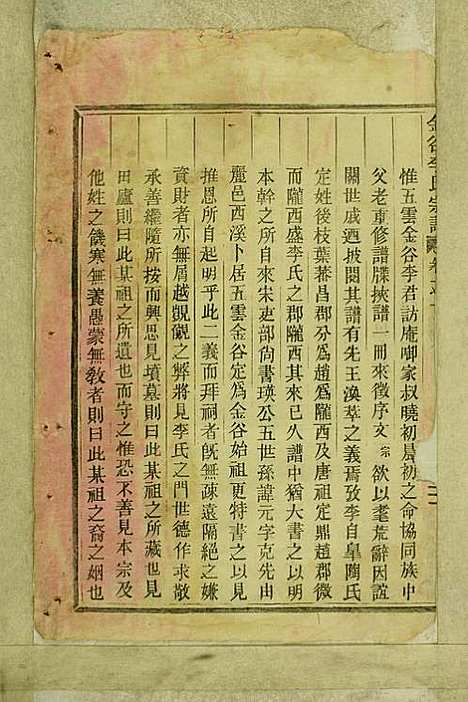 金谷李氏宗譜
惟五雲金谷李君訪庵啣家叔曉初晨初之命協同族中
父老重修譜牒挾譜一冊來徵序文宗欲以耄荒辭因誼
關世戚迺披閱其譜有先王渙萃之義焉攷李自皐陶氏
定姓後枝葉蕃昌郡分爲趙爲隴西及唐祖定鼎趙郡微
而隴西盛李氏之郡隴西其來已久譜中猶大書之以明
本幹之所自來宋吏部尙書瑛公五世孫諱元字克先由
麗邑西溪卜居五雲金谷定爲金谷始祖更特書之以見
推恩所自起明乎此二義而拜祠者旣無疎遠隔絕之嫌
資財者亦無屑越覬覦之弊將見李氏之門世德作求敬
承善繼隨所按而興思見墳墓則曰此某祖之所藏也見
田廬則曰此某祖之所遺也而守之惟恐不善見本宗及
他姓之饑寒無養愚蒙無敎者則曰此某祖之裔之姻也